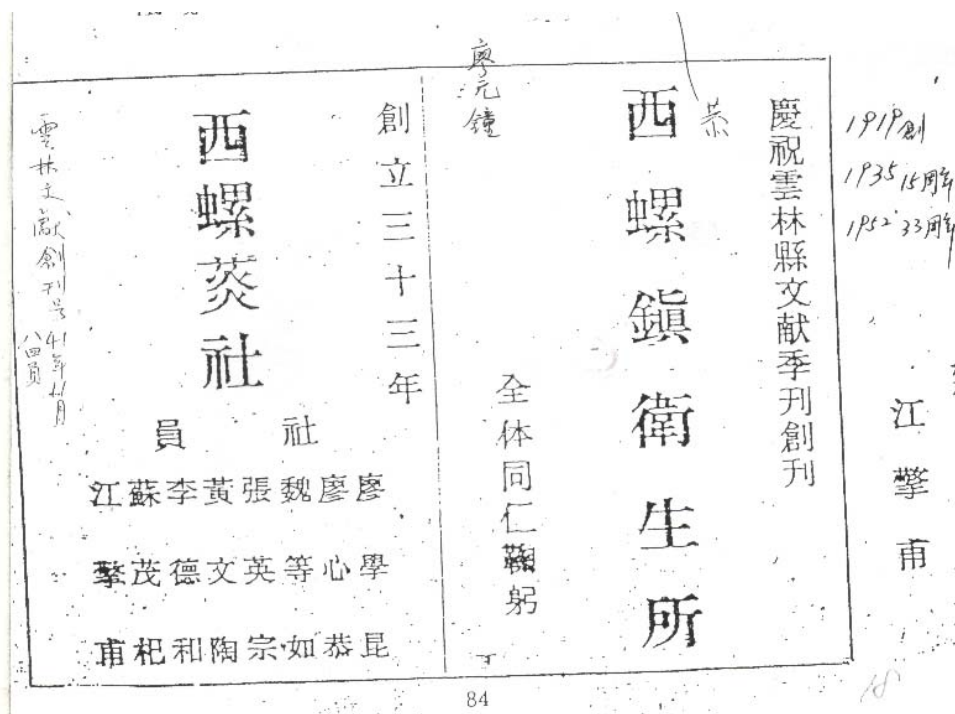 1919創
1935 15周年
1952 33周年
江擎甫
慶祝雲林縣文献季刊創刊
恭
西螺鎮衛生所
全体同仁鞠躬
廖元鐘
創立三十三年
西螺菼社
社員
廖學昆
廖心恭
魏等如
張英宗
黃文陶
李德和
蘇茂杞
江擎甫
雲林文献創刊号
84